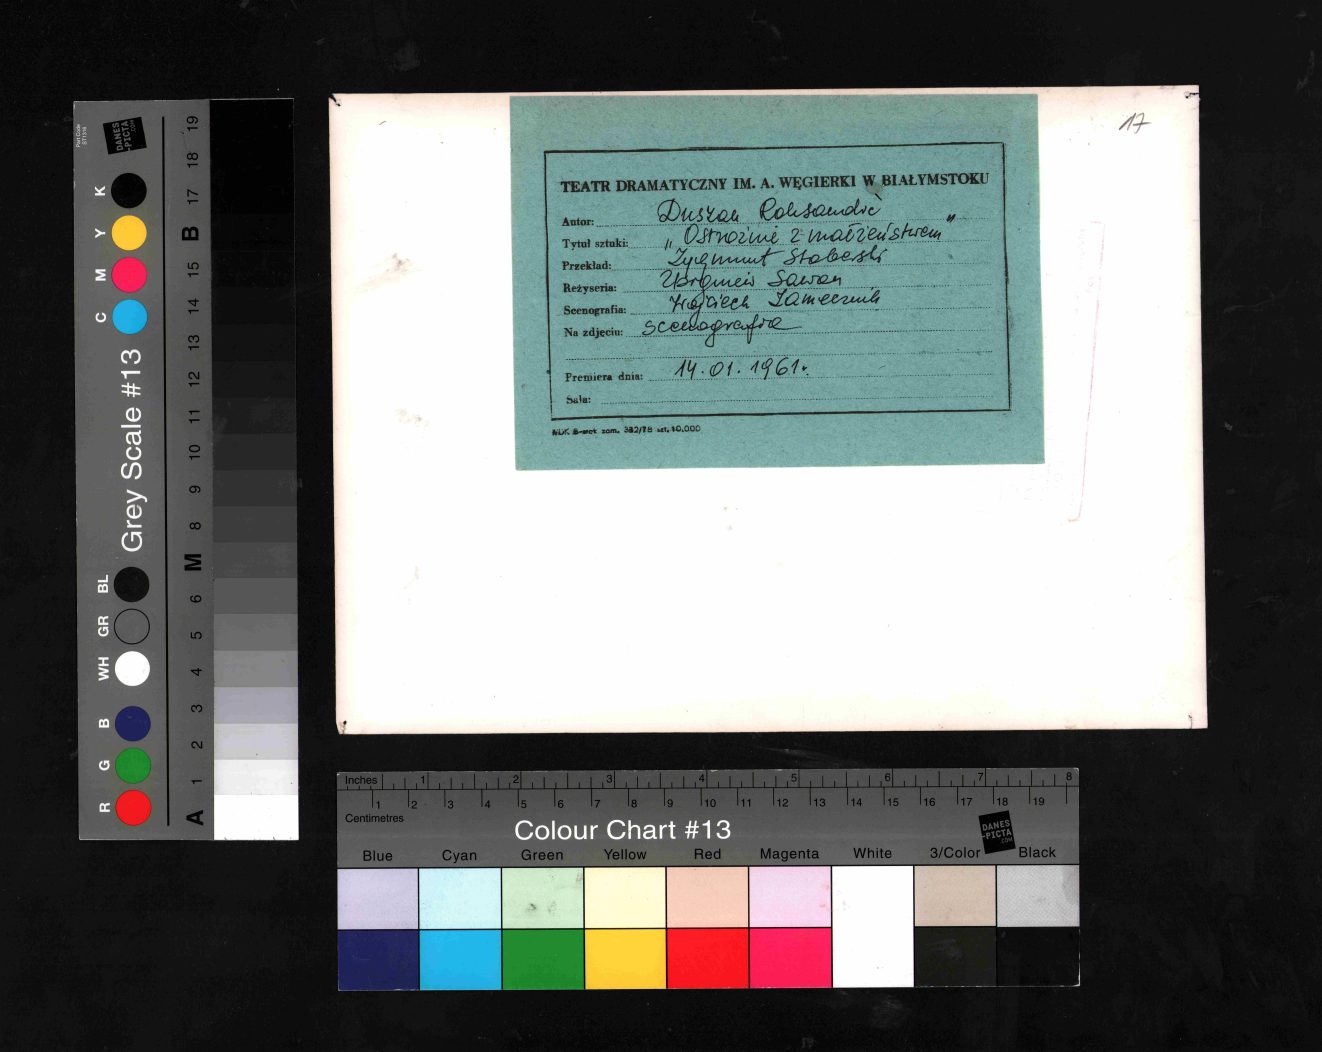 17
TEATR DRAMATYCZNY IM. A. WĘGIERKI W BIAŁYMSTOKU
Autor: Duszan Roksandić
Tytuł sztuki: „Ostrożnie z małżeństwem"
Przekład: Zygmunt Stoberski
Reżyseria: Zbigniew Sawan
Scenografia: Wojciech Zamecznik
Na zdjęciu: scenografia
Premiera dnia: 14.01.1961r.
Sala:
zam. 382/78 szt. 10.000
DANES
-PICTA
.COM
Grey Scale #13
K Y M C
BL GR WH B G R
19 18 17 B 15 14 13 12 11 10 9 8 M 6 5 4 3 2 1 A
Inches 1 2 3 4 5 6 7 8
1 2 3 4 5 6 7 8 9 10 11 12 13 14 15 16 17 18 19
Centimetres
Colour Chart #13
DANES
-PICTA
.COM
Blue Cyan Green Yellow Red Magenta White 3/Color Black